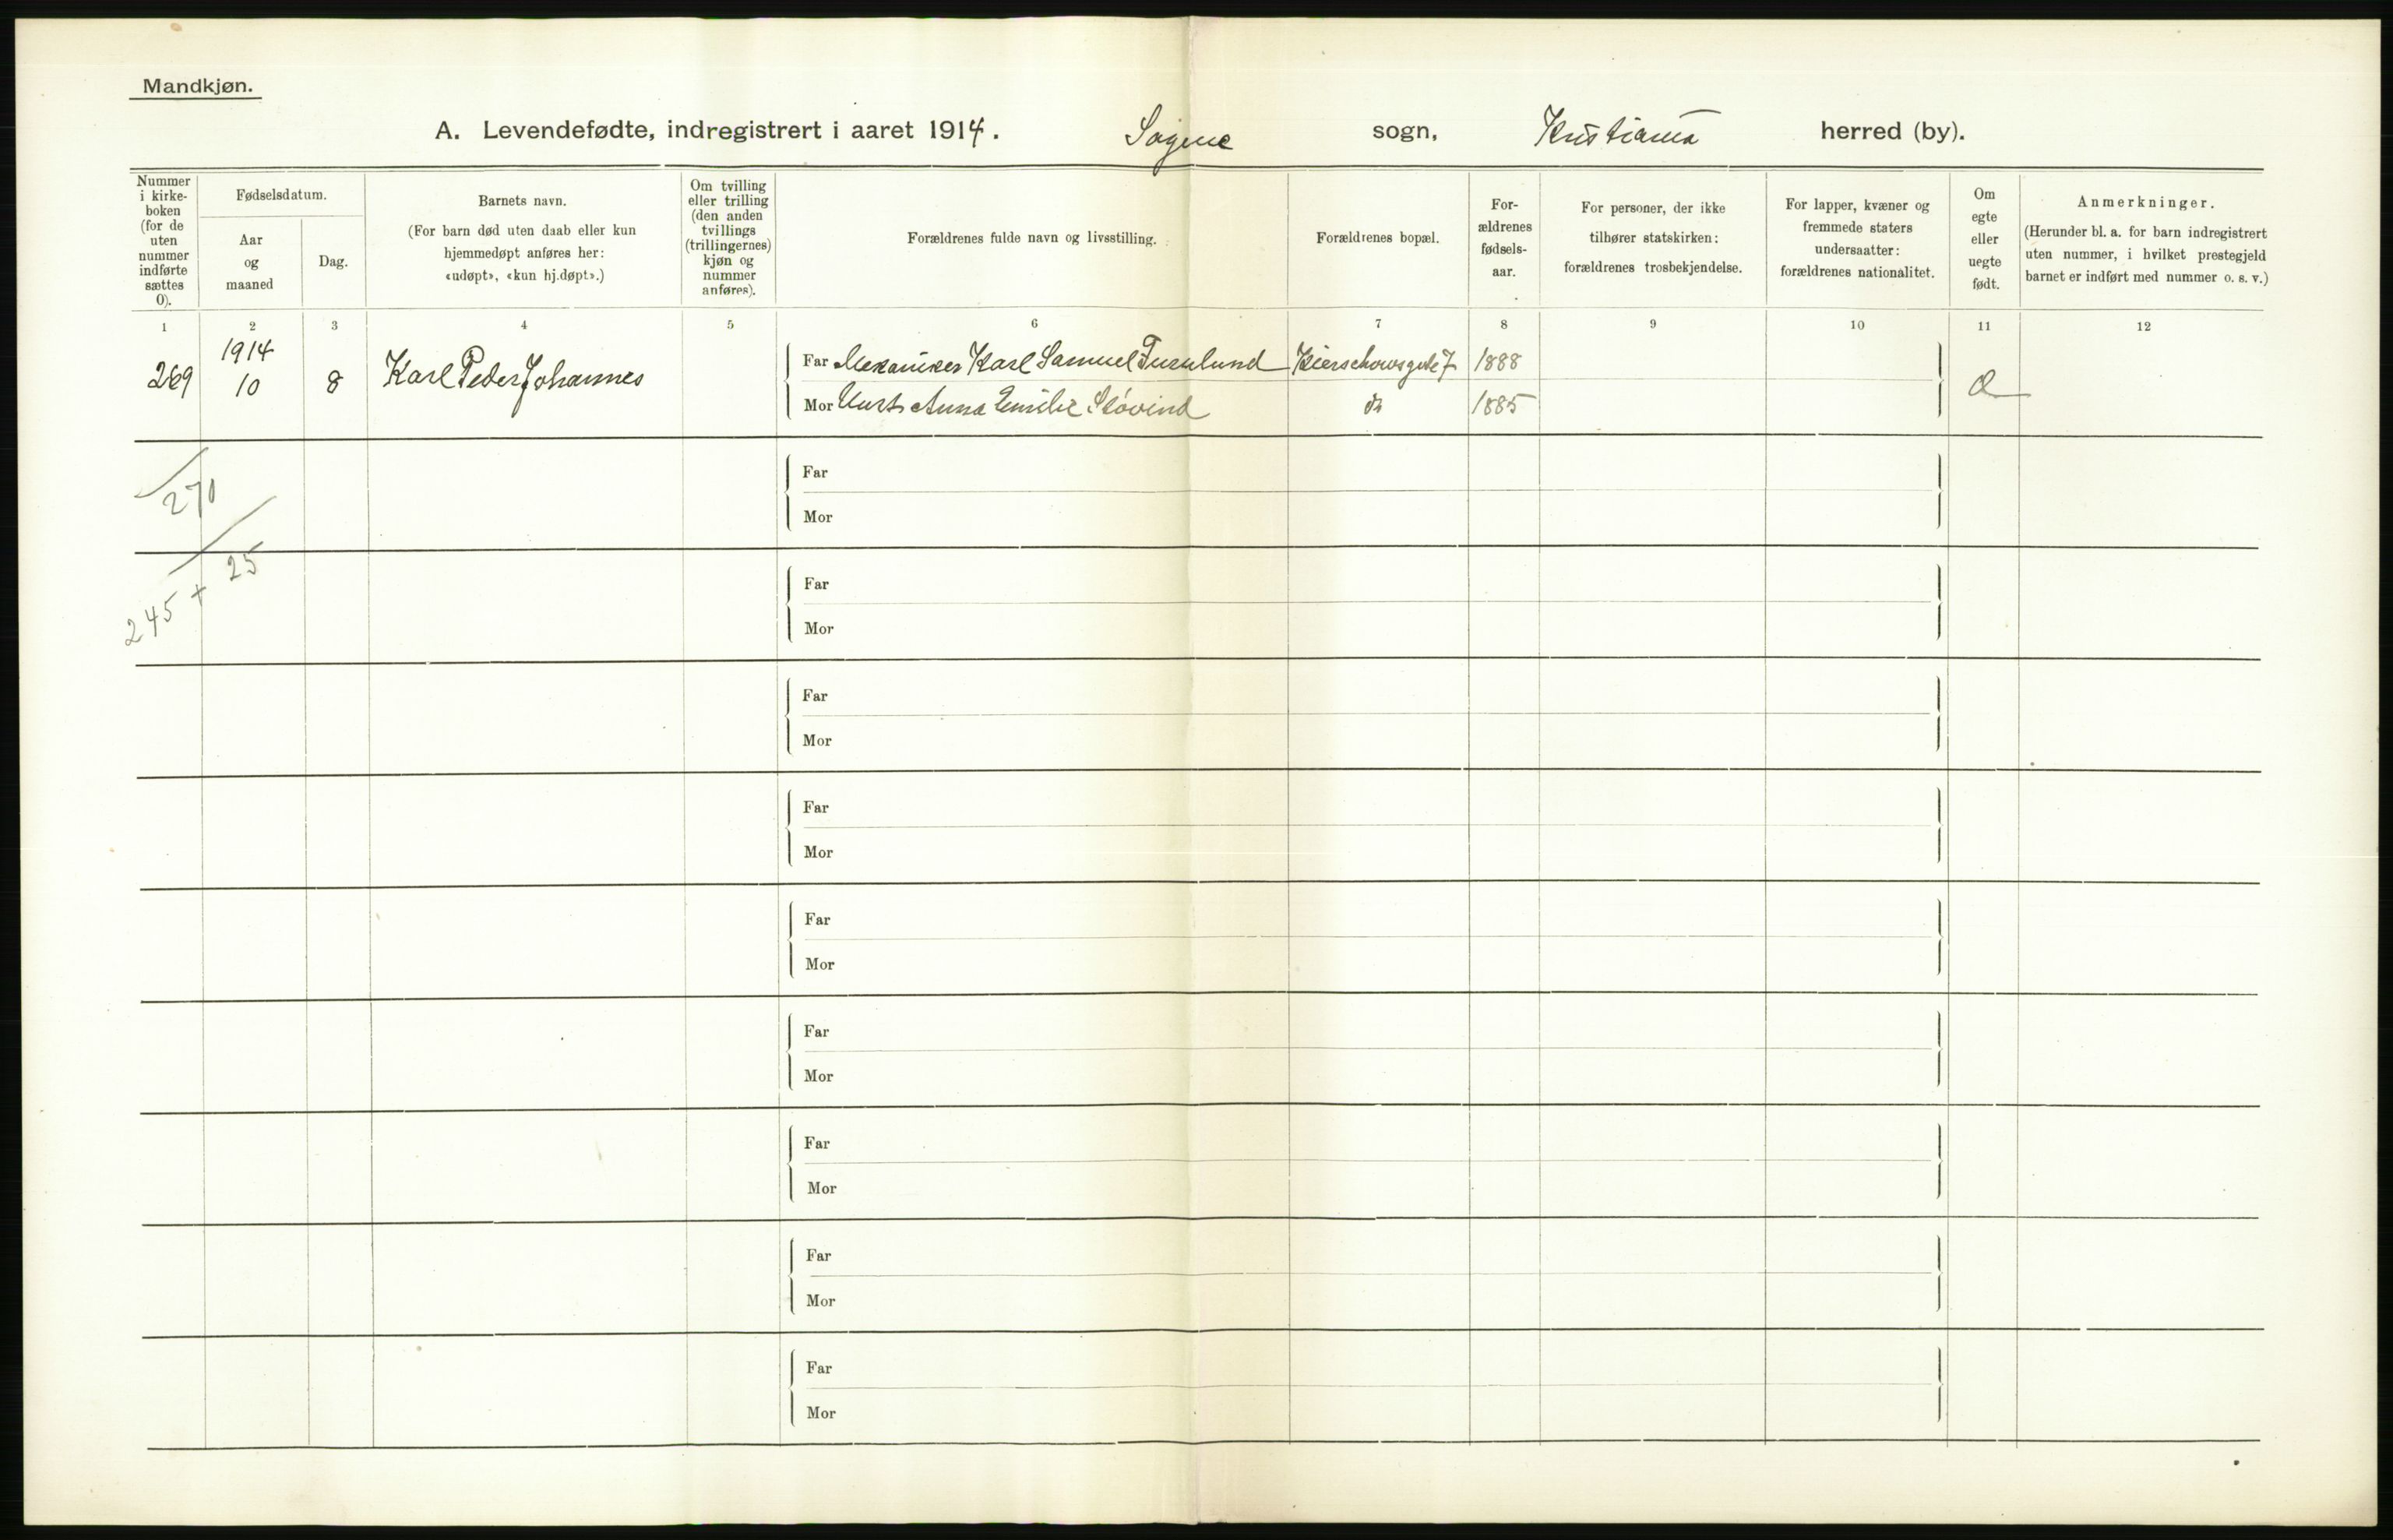 Mandkjøn.
A. Levendefødte, indregistrert i aaret 1914. Sagene sogn, Kristiania herred (by).
Nummer
i kirke-
boken
(for de
uten
nummer
indførte
sættes
0).
Fødselsdatum.
Aar
og
maaned
Dag.
Barnets navn.
(For barn død uten daab eller kun
hjemmedøpt anføres her:
«udøpt», «kun hj.døpt».)
Om tvilling
eller trilling
(den anden
tvillings
(trillingernes)
kjøn og
nummer
anføres).
Forældrenes fulde navn og livsstilling.
Forældrenes bopæl.
For-
ældrenes
fødsels-
aar.
For personer, der ikke
tilhører statskirken:
forældrenes trosbekjendelse.
For lapper, kvæner og
fremmede staters
undersaatter:
forældrenes nationalitet.
Om
egte
eller
uegte
født.
Anmerkninger.
(Herunder bl. a. for barn indregistrert
uten nummer, i hvilket prestegjeld
barnet er indført med nummer o. s. v.)
1 2 3 4 5 6 7 8 9 10 11 12
1914
269 10 8 Karl Peder Johannes
Far Mekaniker Karl Samuel Furulund 7 1888
Mor Anna Emilie Støvind do 1885
Æ
270
245 + 25
Far
Mor
Far
Mor
Far
Mor
Far
Mor
Far
Mor
Far
Mor
Far
Mor
Far
Mor
Far
Mor